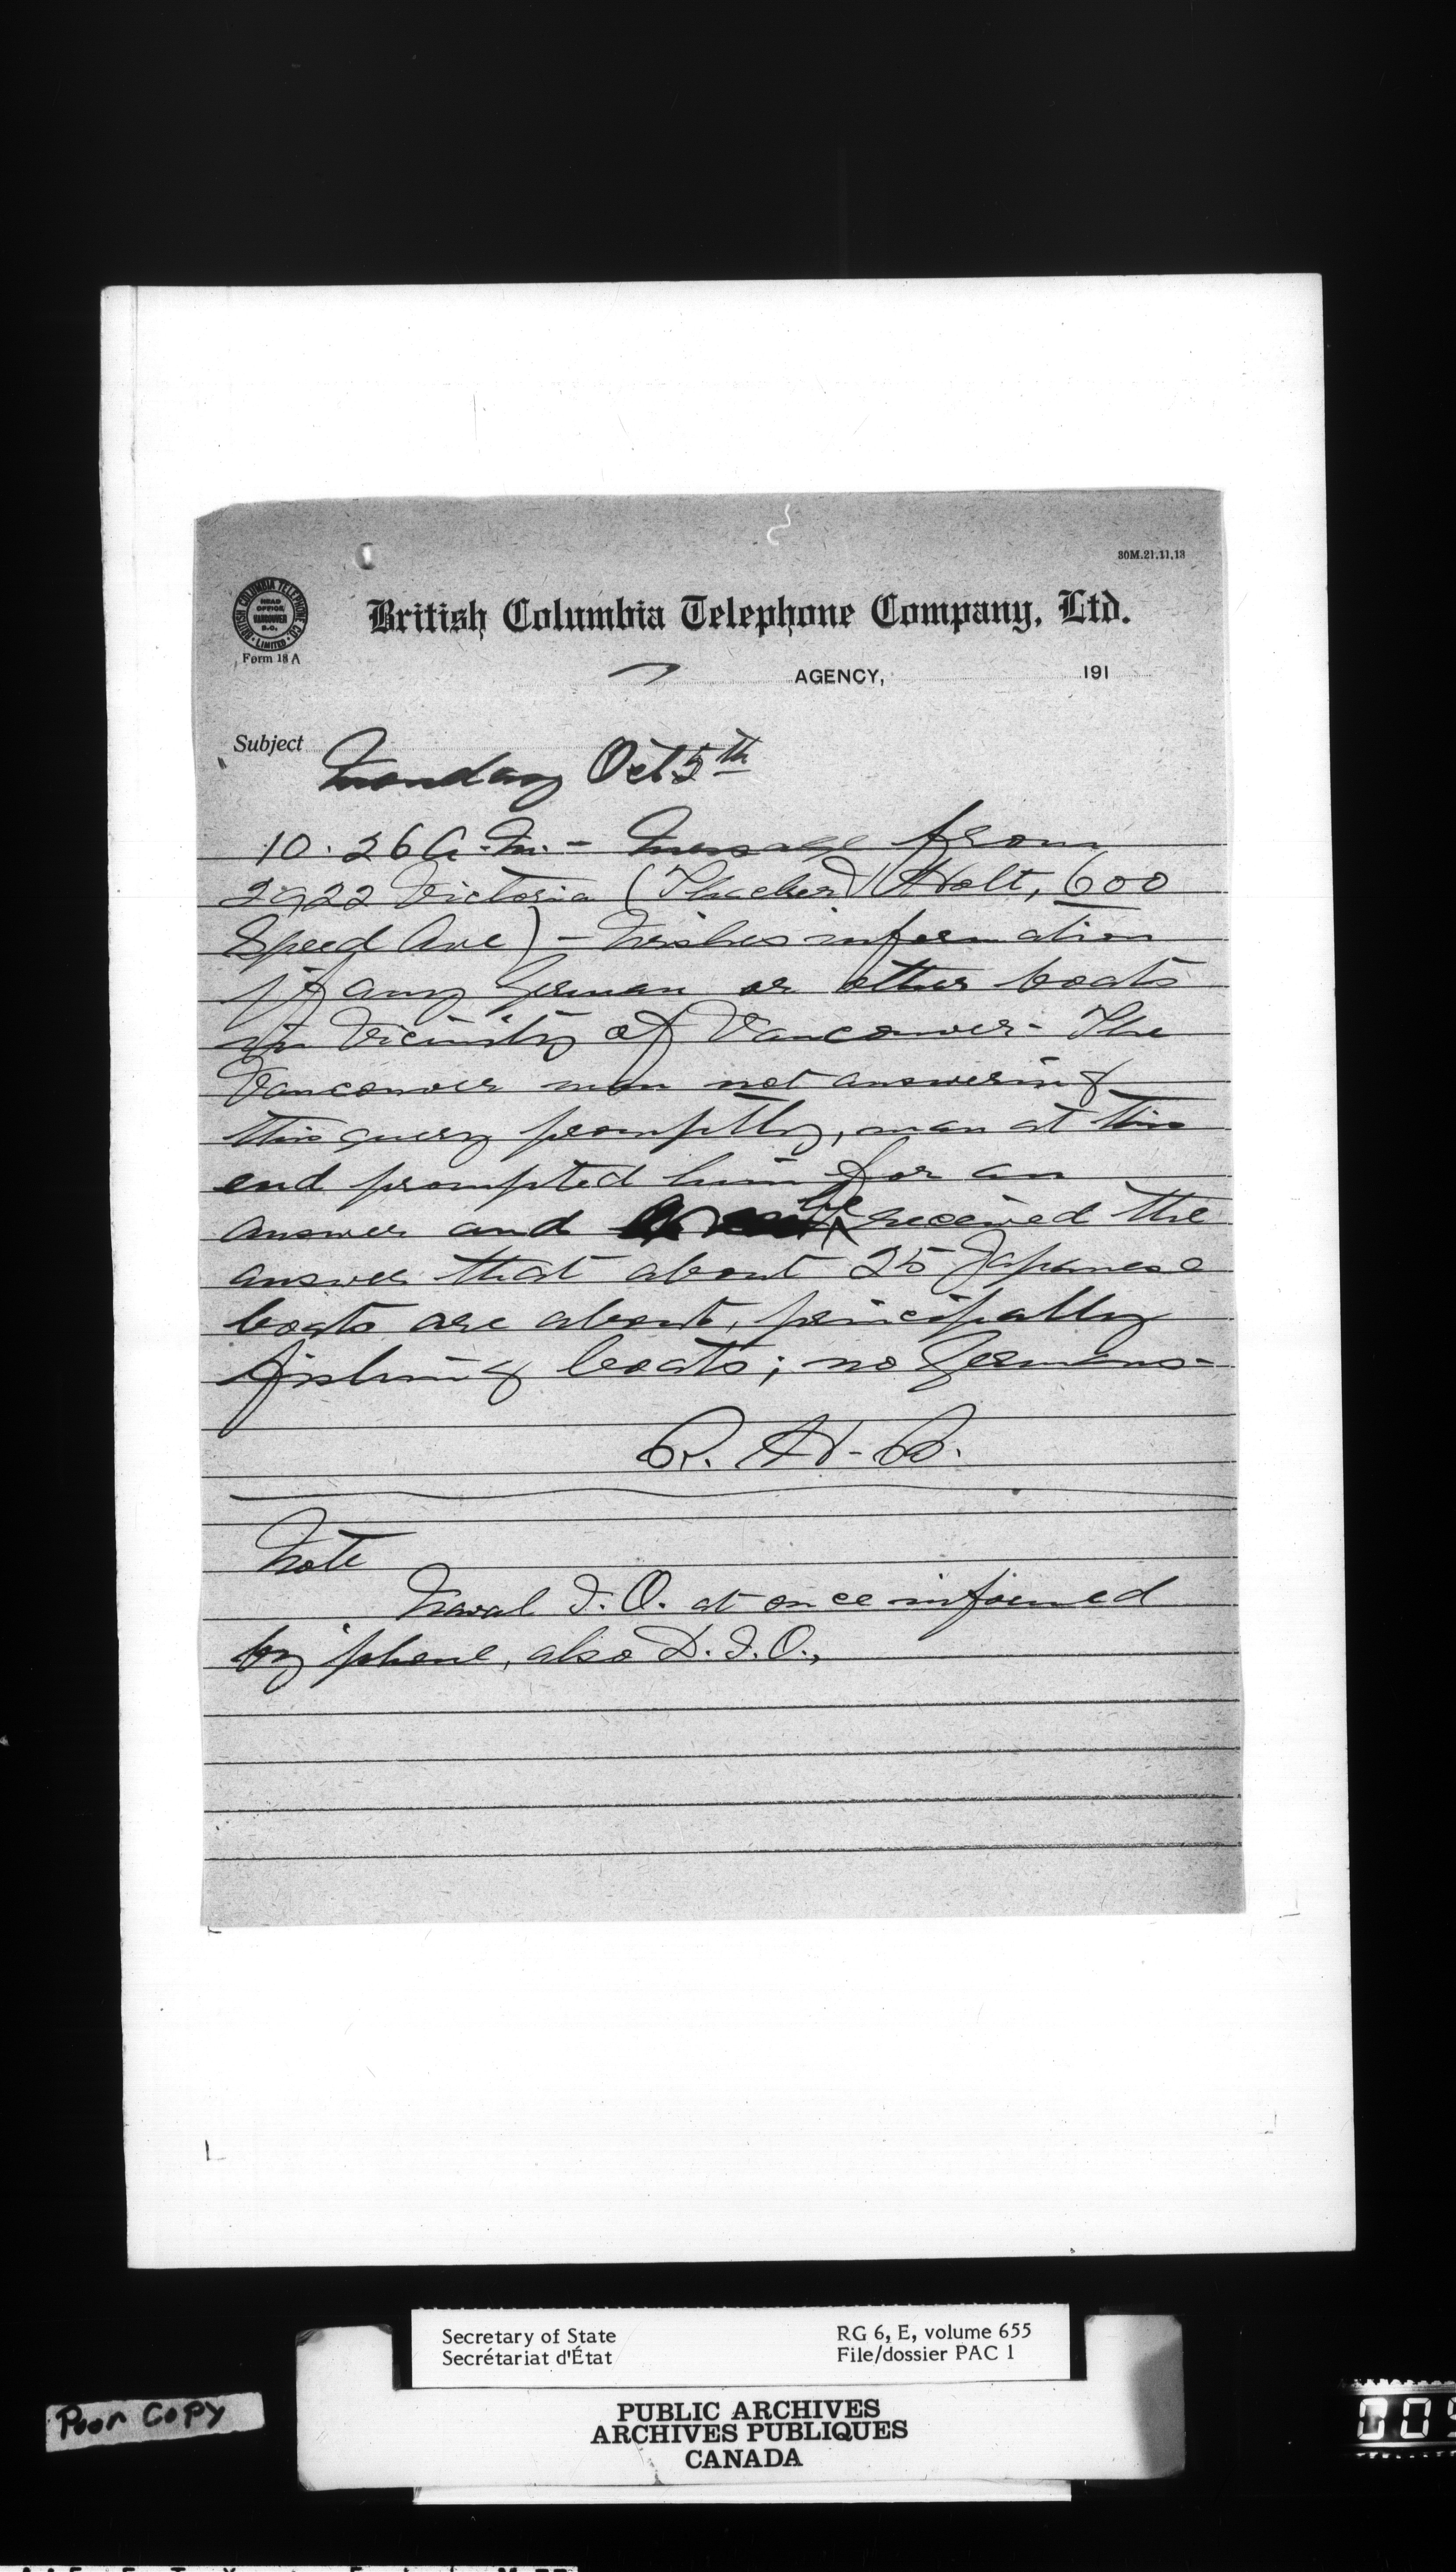 30M.21.11.13
BRITISH COLUMBIA TELEPHONE CO. LIMITED
HEAD OFFICE VANCOUVER B.C.
Form 18 A
British Columbia Telephone Company, Ltd.
AGENCY, 191
Subject
Monday Oct 5th
10.26 A.M. - Message from
2922 Victoria (Thacker) (Holt, 600
Speed Ave) - Wishes information
if any German or other boats
in vicinity of Vancouver - The
Vancouver man not answering
this query promptly, man at this
end prompted him for an
answer and he received the
answer that about 25 Japanese
boats are about, principally
fishing boats; no Germans -
R. H. B.
Note
Naval I.O. at once informed
by 'phone, also D.I.O.,
Secretary of State
Secrétariat d'État
RG 6, E, volume 655
File/dossier PAC 1
Poor Copy
PUBLIC ARCHIVES
ARCHIVES PUBLIQUES
CANADA